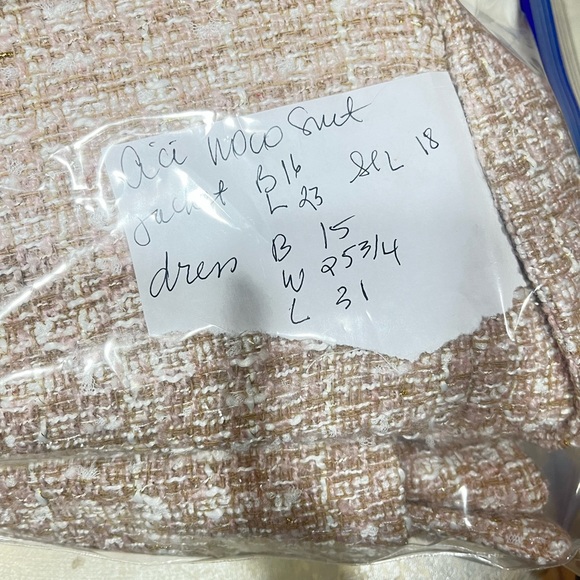 Cici HOCO Suit
jacket B 16
L 23 SEL 18
dress B 15
W 25 3/4
L 31